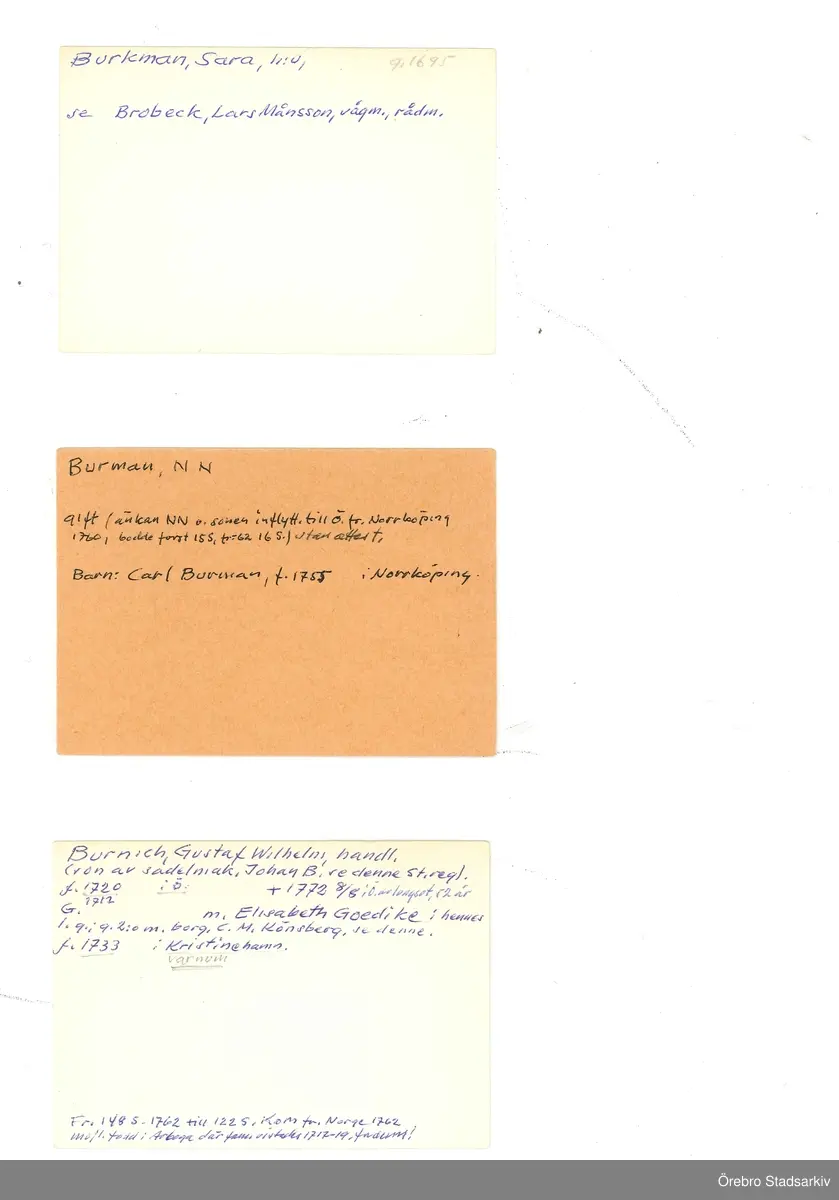 Burkman, Sara, h:u, g. 1695
se Brobeck, Lars Månsson, vågm., rådm.
Burman, NN
gift (änkan NN o. sonen inflytt. till Ö. fr. Norrköping
1760, bodde först 155, fr. 62 16 S.) utan attest.
Barn: Carl Burman, f. 1755 i Norrköping.
Burnich, Gustaf Wilhelm, handl.
(son av sadelmak. Johan B. se denne St. reg).
f. 1720 i Ö. + 1772 8/8 i Ö. av lungsot, 52 år
1712
G. m. Elisabeth Goedike i hennes
1. g. i g. 2:o m. borg. C. M. Könsberg, se denne.
f. 1733 i Kristinehamn.
Varnum
Fr. 148 S. 1762 till 122 S. Kom fr. Norge 1762
möjl. född i Arboga där fam. vistades 1717-19,